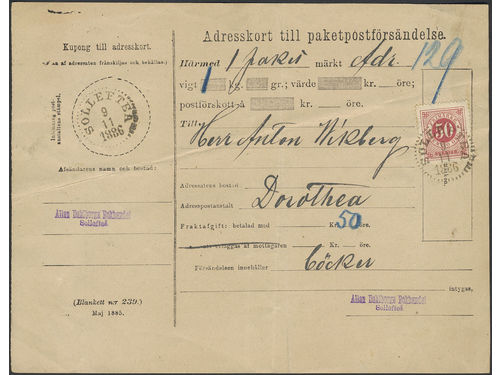 Kupong till adresskort.
(Kan af adressaten frånskiljas och behållas.)
Inlämnings post-
anstaltens stämpel.
SOLLEFTEÅ
9
11
1886
Afsändarens namn och bostad:
Allan Dahlboms Bokhandel
Sollefteå
(Blankett n:r 239.)
Maj 1885.
Adresskort till paketpostförsändelse.
Härmed 1 paket märkt Adr. 129
vigt 1 kg. gr.; värde kr. öre;
postförskott å kr. öre;
Till Herr Anton Wikberg
50
SOLLEFTEÅ
1886
Adressatens bostad
Adresspostanstalt Dorothea
Fraktafgift: betalad med Kr. 50 öre.
att erläggas af mottagaren Kr. öre.
Försändelsen innehåller Böcker
intygas,
Allan Dahlboms Bokhandel
Sollefteå